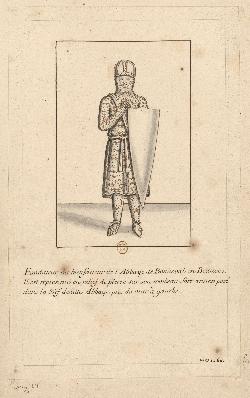 Fondateur ou bienfaiteur de l'Abbaye de
Il est représenté en relief de pierre sur son tombeau fort ancien posé
dans la Nef de cette Abbaye, près du mur à gauche.